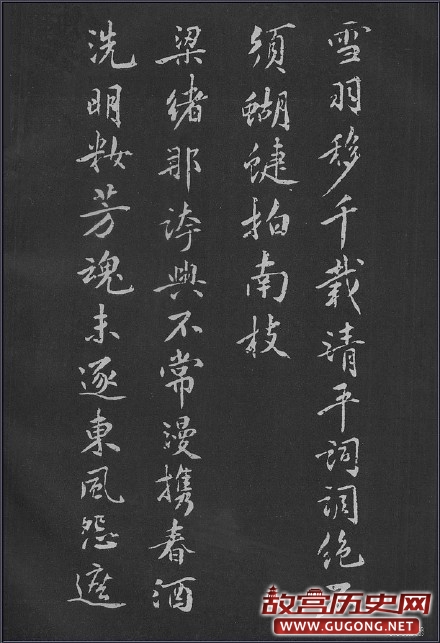 雪羽移千载清平词调绝不
须蝴蝶拍南枝
梁绪那誇興不常漫攜春酒
洗明妝芳魂未逐東風怨遮
故宫历史网
WWW.GUGONG.NET